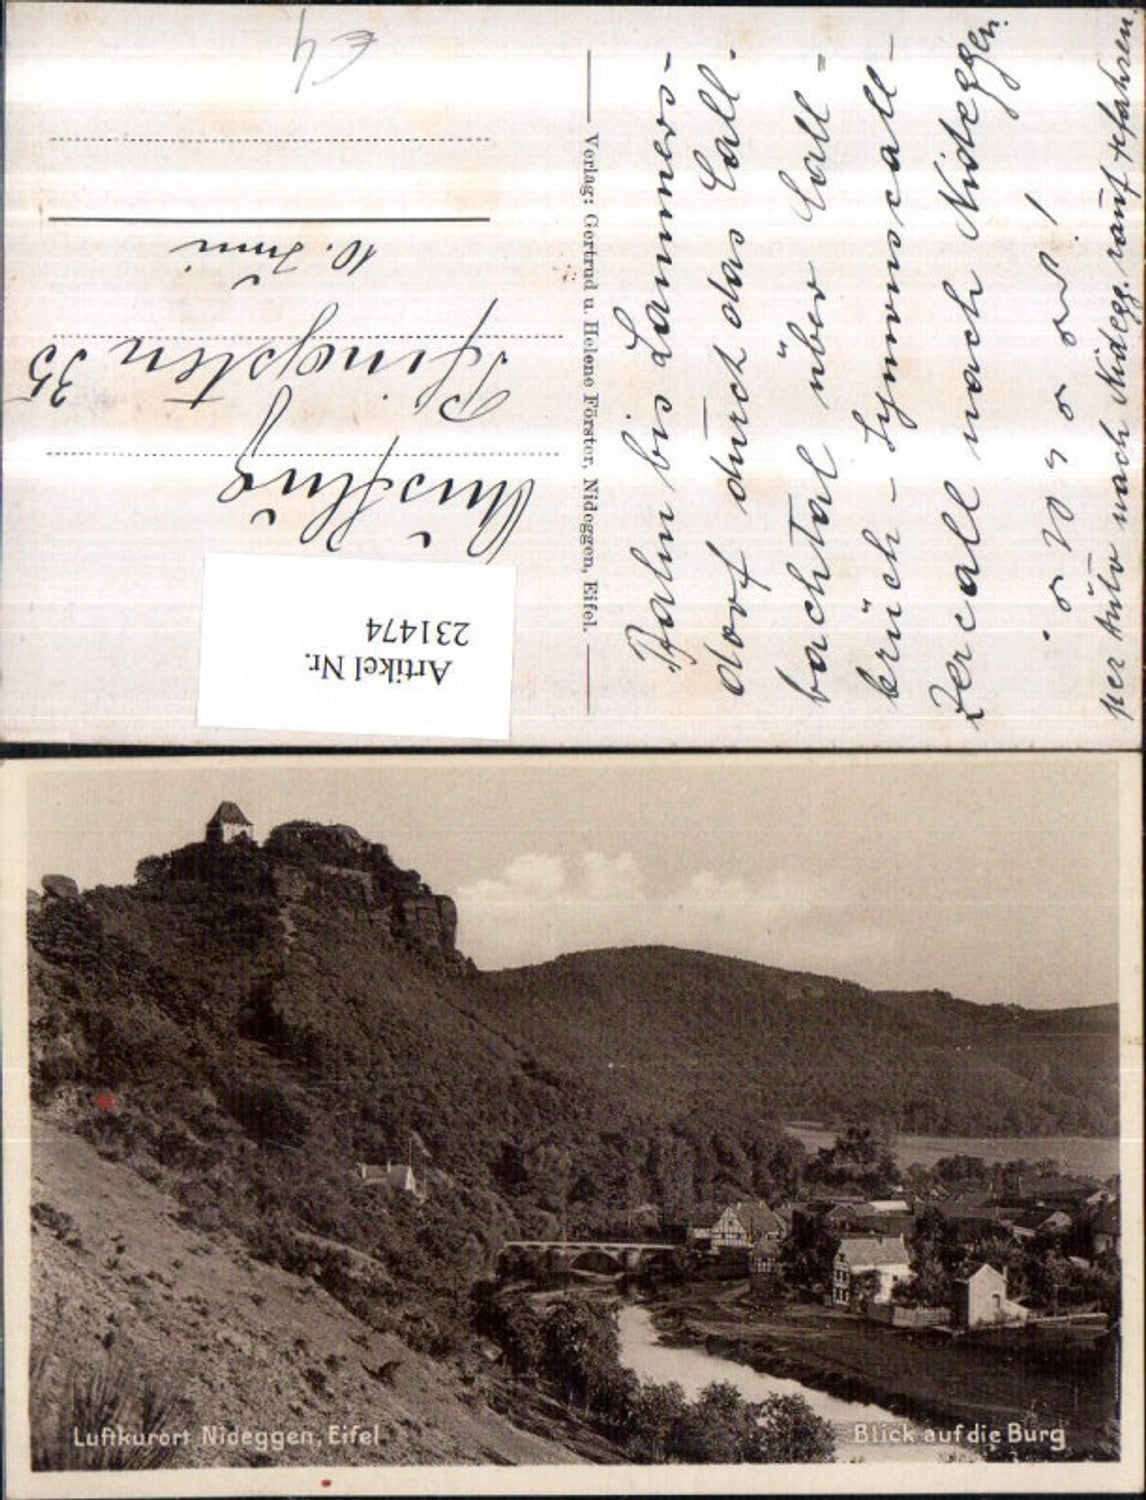 €4
Ausflug
Pfingsten 35
10. Juni
Artikel Nr.
231474
Verlag: Gertrud u. Helene Förster, Nideggen, Eifel.
Bahn bis Lammers-
dorf durch das Call-
bachtal über Call=
brück - Symonscall -
Zercall nach Nideggen.
per Auto nach Nidegg. rauf gefahren.
Luftkurort Nideggen, Eifel
Blick auf die Burg